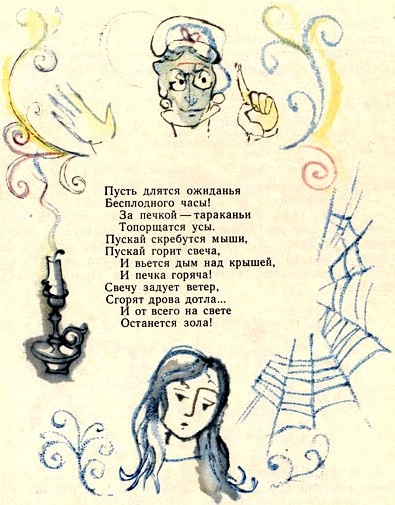 Пусть длятся ожиданья
Бесплодного часы!
За печкой — тараканьи
Топорщатся усы.
Пускай скребутся мыши,
Пускай горит свеча,
И вьется дым над крышей,
И печка горяча!
Свечу задует ветер,
Сгорят дрова дотла...
И от всего на свете
Останется зола!